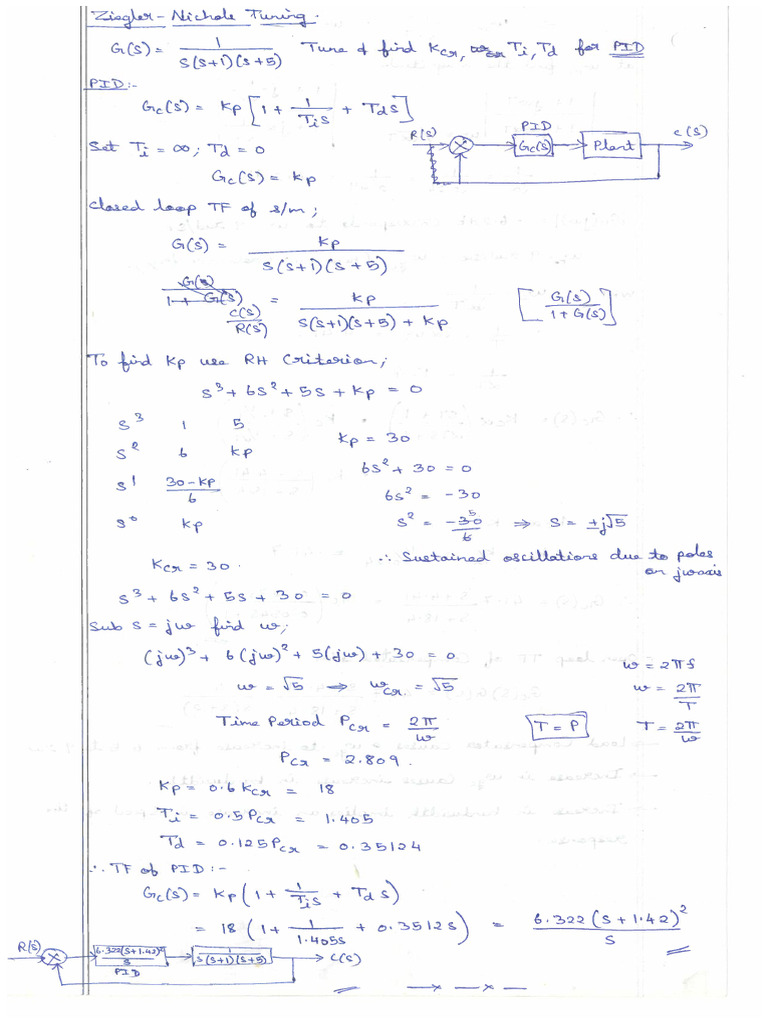 Ziegler-Nichols Tuning.
G(s) = 1 / s(s+1)(s+5) Tune & find Kcr, wcr Ti, Td for PID
PID:-
Gc(s) = Kp [1 + 1/Tis + Tds]
Set Ti = ∞; Td = 0
Gc(s) = Kp
R(s) PID Gc(s) Plant C(s)
Closed loop TF of s/m;
G(s) = Kp / s(s+1)(s+5)
G(s) / 1 + G(s)
C(s)/R(s) = Kp / s(s+1)(s+5) + Kp [G(s) / 1+G(s)]
To find Kp use RH Criterion;
s³ + 6s² + 5s + Kp = 0
s³ 1 5
s² 6 Kp
s¹ 30-Kp / 6
s⁰ Kp
Kp = 30
6s² + 30 = 0
6s² = -30
s² = -30/6 5 ⇒ s = ±j√5
Kcr = 30.
∴ Sustained oscillations due to poles
on jwaxis
s³ + 6s² + 5s + 30 = 0
Sub s = jw find w;
(jw)³ + 6(jw)² + 5(jw) + 30 = 0
w = √5 ⇒ wcr. = √5
w = 2πf
w = 2π/T
T = 2π/w
Time Period Pcr = 2π/w
T = P
Pcr = 2.809.
Kp = 0.6Kcr = 18
Ti = 0.5Pcr = 1.405
Td = 0.125Pcr = 0.35124
∴ TF of PID:-
Gc(s) = Kp (1 + 1/Tis + Td s)
= 18 (1 + 1/1.405s + 0.3512s) = 6.322(s+1.42)² / s
R(s) 6.322(s+1.42)² / s PID 1 / s(s+1)(s+5) C(s)
— x — x —